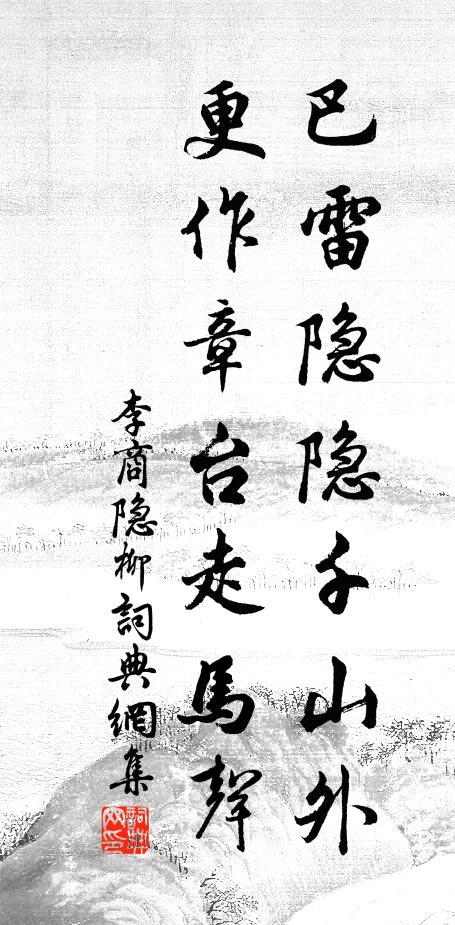 巴雷隐隐千山外
更作章台走馬聲
李商隐柳詞典網集